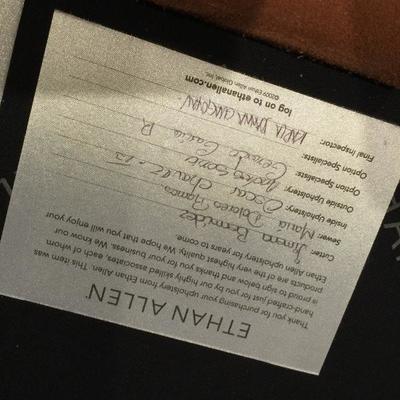 ETHAN ALLEN
Thank you for purchasing your upholstery from Ethan Allen. This item was
hand-crafted just for you by our highly skilled associates, each of whom
is proud to sign below and thanks you for your business. We know our
products are of the very highest quality. We hope that you will enjoy your
Ethan Allen upholstery for years to come.
Cutter: Jimena Bermúdez
Sewer: Maria Dolores Ramos
Inside Upholstery: Oscar
Outside Upholstery:
Option Specialists: Gerardo Garcia R
Option Specialists:
Final Inspector: KARLA
log on to ethanallen.com
©2009 Ethan Allen Global, Inc.